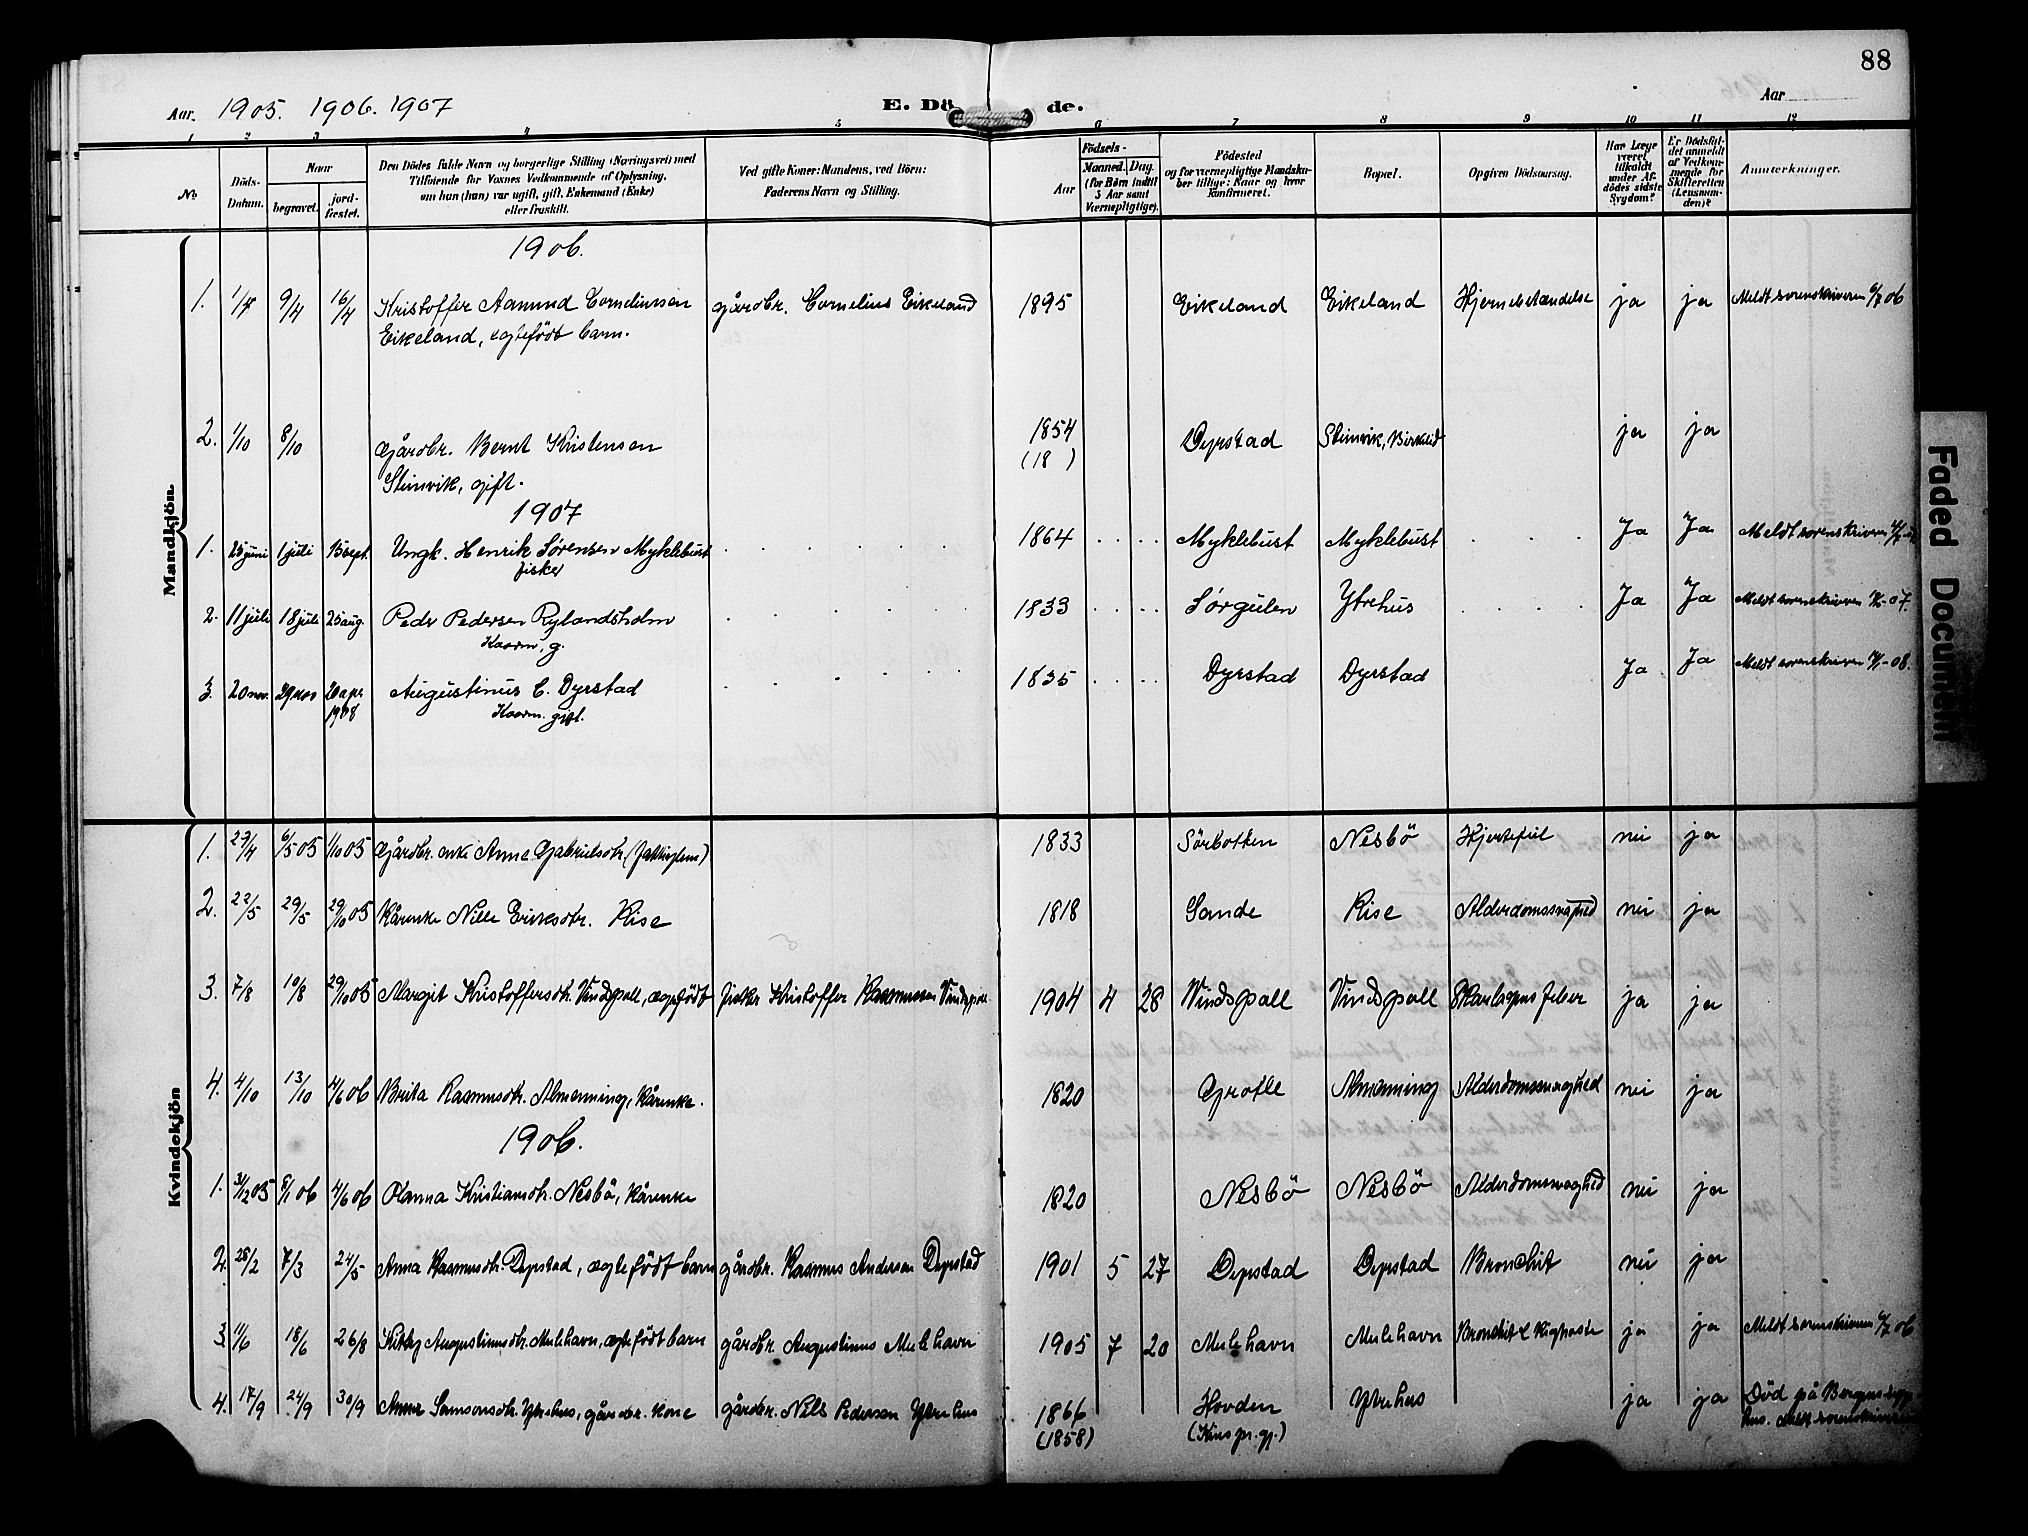 88
Aar. 1905. 1906. 1907
E. Dö de.
Aar
1 2 3 4 5 6 7 8 9 10 11 12
No
Döds-
Datum.
Naar
begravet.
jord-
fæstet.
Den Dödes fulde Navn og borgerlige Stilling (Næringsvei) med
Tilföiende for Voxnes Vedkommende af Oplysning,
om han (hun) var ugift, gift, Enkemand (Enke)
eller fraskilt.
Ved gifte Koner: Mandens, ved Börn:
Faderens Navn og Stilling.
Aar
Födsels-
Maaned. Dag.
(for Börn indtil
5 Aar samt
Værnepligtige).
Födested
og for værnepligtige Mandska-
ber tillige: Naar og hvor
konfirmeret.
Bopæl.
Opgiven Dödsaarsag.
Har Læge
været
tilkaldt
under Af-
dödes sidste
Sygdom?
Er Dödsfal-
det anmeldt
af Vedkom-
mende for
Skifteretten
(Lensman-
den)?
Anmærkninger.
Mandkjön.
1906.
1. 1/4 9/4 16/4 Kristoffer Aamund Corneliussen gårdbr. Cornelius Eikeland 1895 Eikeland Eikeland Hjernebetændelse ja ja Meldt sorenskriveren 6/7 06
Eikeland, ægtefödt barn.
2. 1/10 8/10 Gårdbr. Bernt Kristensen 1854 Dyrstad Steinvik, Birkelid ja ja
(18 )
Steinvik, gift.
1907
1. 25 juni 1 juli 15 sept. Ungk. Henrik Sørensen Myklebust 1864 Myklebust Myklebust Ja Ja Meldt sorenskriveren
fisker
2. 11 juli 18 juli 25 aug. Peder Pedersen Rylandsholm 1833 Sørgulen Ytrehus Ja Ja Meldt sorenskriveren 07.
Kaarm, g.
3. 20 nov. 29 nov 20 apr Augustinus C. Dyrstad 1835 Dyrstad Dyrstad Ja Ja Meldt sorenskriveren 08.
1908 Kaarm. gift.
Kvindekjön
1. 29/4 6/5 05 1/10 05 Gårdbr. enke Anne Gabrielsdtr. 1833 Sörbotten Nesbö Hjertefeil nei ja
2. 22/5 29/5 29/10 05 Kårenke Nille Eriksdtr. Rise 1818 Sande Rise Alderdomssvaghed nei ja
3. 7/8 10/8 29/10 05 Margit Kristoffersdtr. Vindspoll, ægefödt fisker Kristoffer Rasmussen Vindspoll 1904 4 28 Vindspoll Vindspoll Skarlagens feber ja ja
4. 4/10 13/10 4/6 06 Brita Rasmusdtr. Almenning, Kårenke. 1820 Grotle Almenning Alderdomssvaghed nei ja
1906.
1. 31/12 05 8/1 06 4/6 06 Olanna Kristiansdtr. Nesbö, Kårenke 1820 Nesbö Nesbö Alderdomssvaghed nei ja
2. 28/2 7/3 24/5 Anna Rasmusdtr. Dyrstad, ægtefödt barn gårdbr. Rasmus Andersen Dyrstad 1901 5 27 Dyrstad Dyrstad Bronchit nei ja
3. 11/6 18/6 26/8 Kitty Augustinusdtr. Mulehavn, ægtefödt barn gårdbr. Augustinus Mulehavn 1905 7 20 Mulehavn Mulehavn Bronchit & Kighoste ja ja Meldt sorenskriveren 6/7 06
4. 17/9 24/9 30/9 Anna Samsonsdtr. Ytrehus, gårdbr. kone gårdbr. Nils Pedersen Ytrehus 1866 Hovden Ytrehus ja ja Död på Bergens syge-
(1858) (Kins pr. gj.) hus. Meldt sorenskriveren
Faded Document